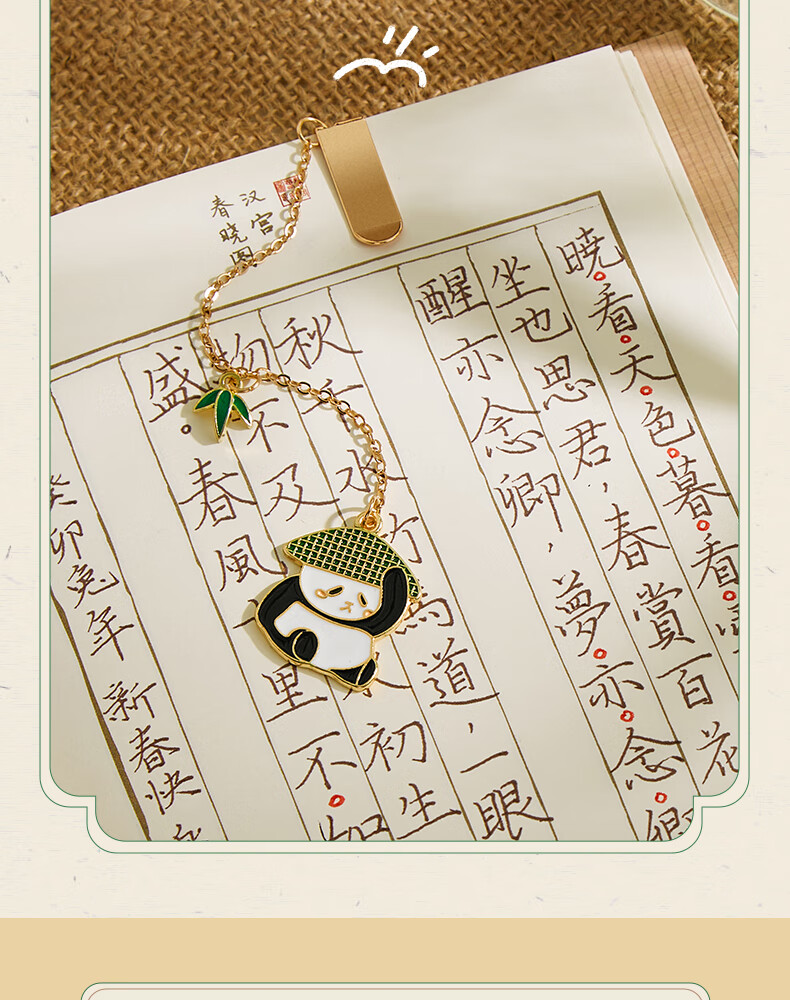 汉宫
春晓图
晓看天色暮看
坐也思君，春賞百花
醒亦念卿，夢亦念卿
秋千水竹馬道，一眼
物不及初生
盛。春風十里不如
癸卯兔年 新春快